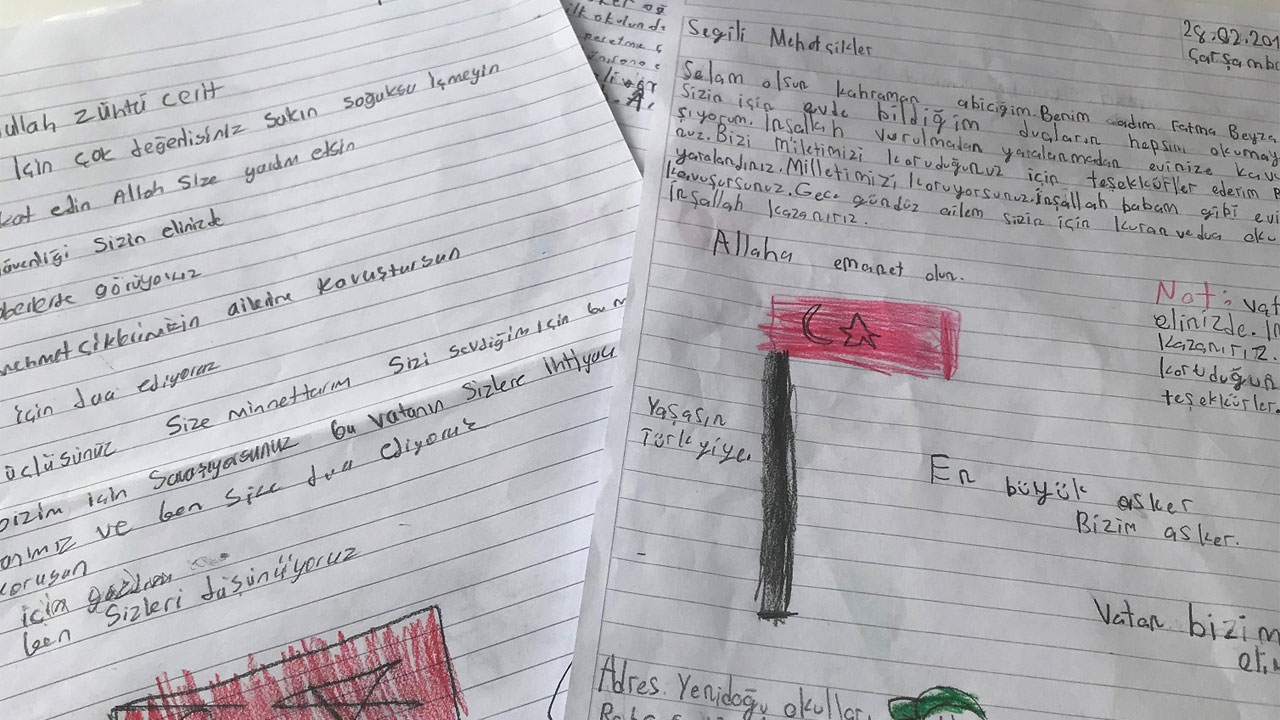 ullah Zühtü Cerit
için çok değerlisiniz sakın soğuksu içmeyin
kat edin Allah size yardım etsin
güvenliği sizin elinizde
berlerde görüyoruz
mehmetçiklerimizin ailerine kavuştursun
için dua ediyoruz
üçlüsünüz size minnettarım sizi sevdiğim için bu m
bizim için savaşıyasunuz bu vatanın sizlere ihtiyacı
anımız ve ben size dua ediyoruz
korusun
için
ben sizleri düşünüyoruz
ilkokulunda
Segili Mehetçikler
28.02.201
Çarşamba
Selam olsun kahraman abiciğim. Benim adım Fatma Beyza
Sizin için evde bildiğim duaların hepsini okumay
şıyorum. İnşallah vurulmadan yaralanmadan evinize kavu
nuz. Bizi milletimizi koruduğunuz için teşekkürler ederim
yaralandınız. Milletimizi koruyorsunuz. İnşallah babam gibi evi
kavuşursunuz. Gece gündüz ailem sizin için kuran ve dua oku
İnşallah kazanırız.
Allaha emanet olun.
Not: vat
elinizde. İn
kazanırız.
koruduğun
teşekkürler.
Yaşasın
Türkyiye.
En büyük asker
Bizim asker.
Vatan bizim
Adres. Yenidoğu okulları